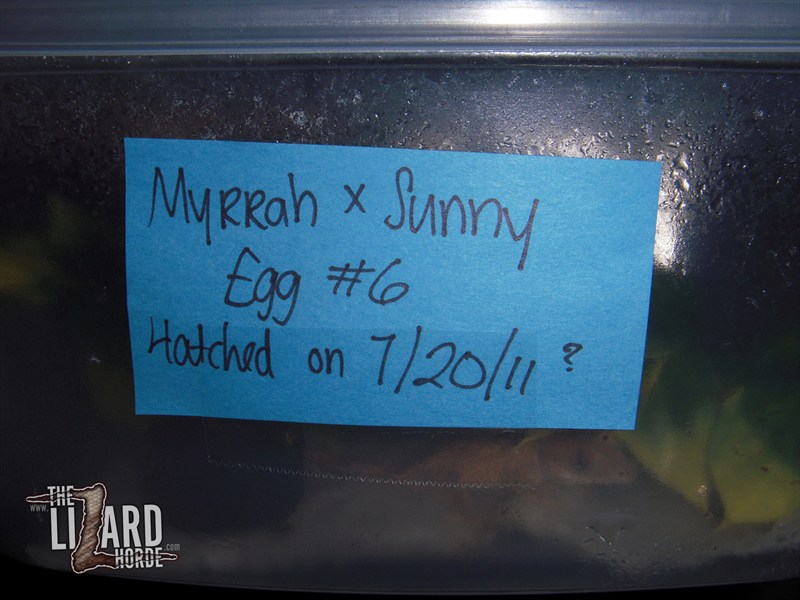 Myrrah x Sunny
Egg #6
Hatched on 7/20/11 ?
www.
THE
LIZARD
HORDE
.com